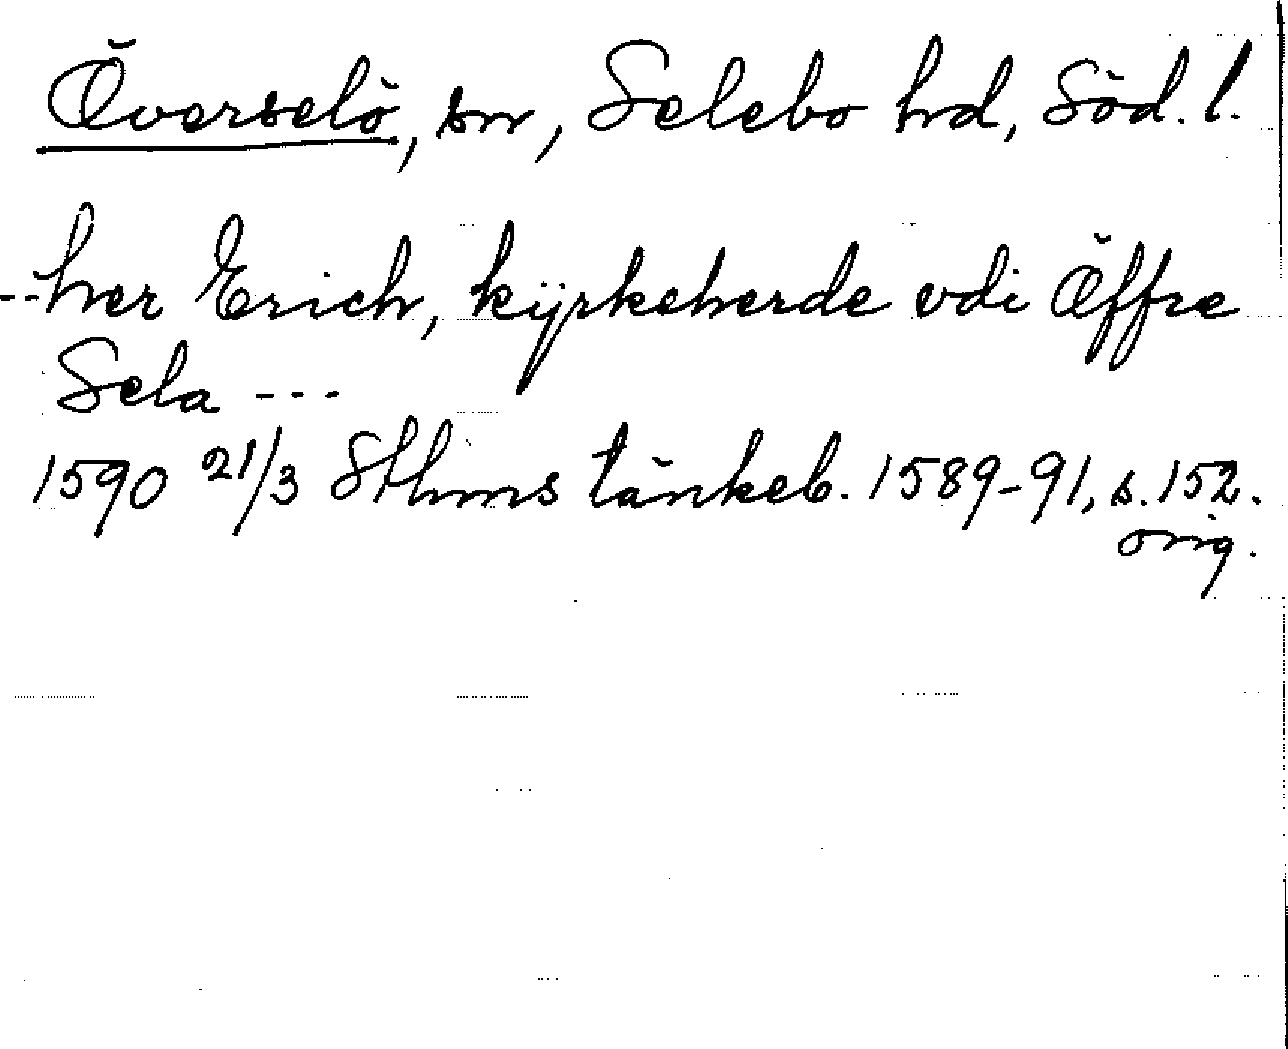 Överselö, sn, Selebo hd, Söd. l.
--her Erich, kÿrkeherde vdi Öffre
Sela ---
1590 21/3 Sthms tänkeb. 1589-91, s. 152.
orig.